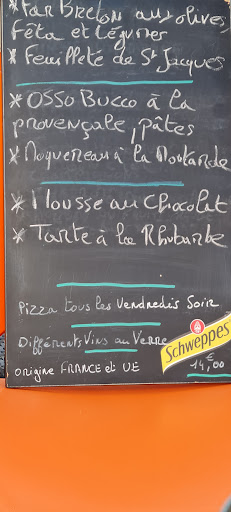 * Far Breton aux olives,
Fêta et Légumes
* Feuilleté de St Jacques
* OSSO Bucco à la
provençale, pâtes
* Maquereau à la Moutarde
* Mousse au Chocolat
* Tarte à la Rhubarbe
Pizza tous les Vendredis Soir
Différents Vins au Verre
Schweppes
origine FRANCE et UE 14,€00